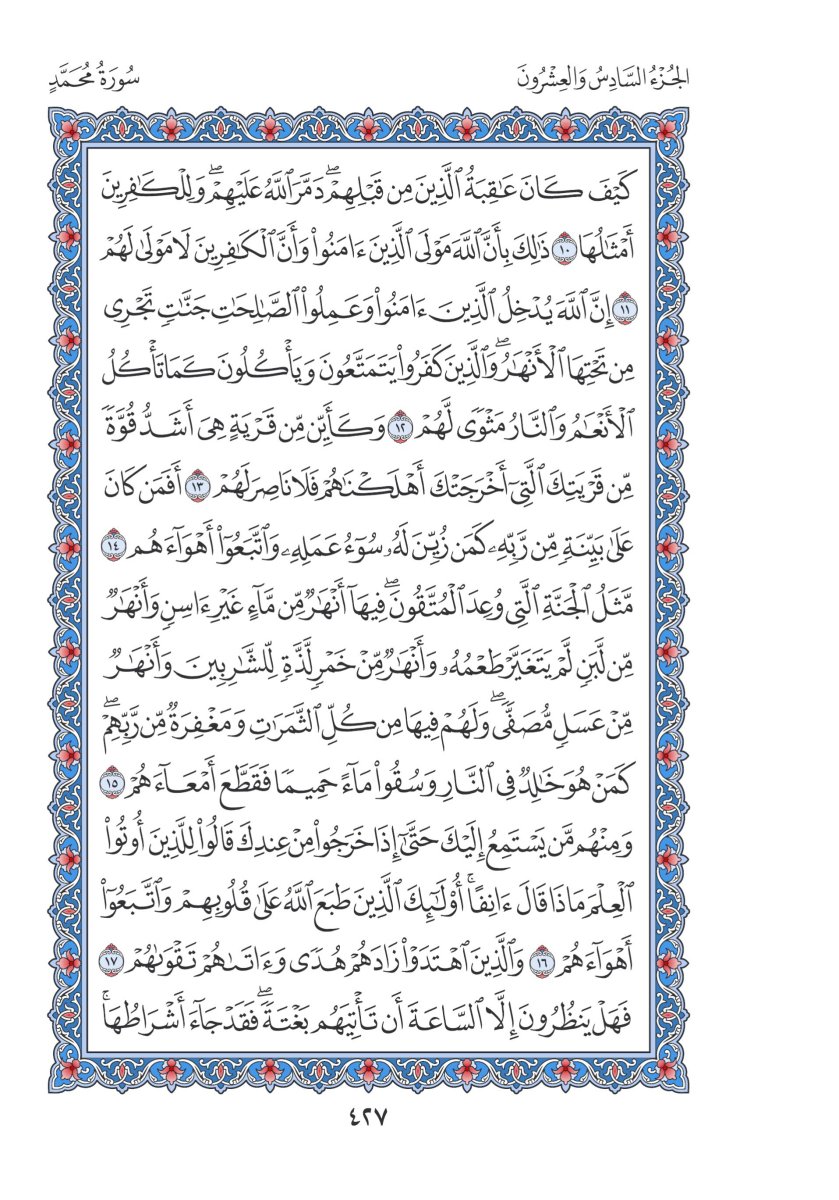 الجُزْءُ السَّادِسُ وَالعِشْرُونَ
سُورَةُ مُحَمَّدٍ
كَيْفَ كَانَ عَٰقِبَةُ ٱلَّذِينَ مِن قَبْلِهِمْۖ دَمَّرَ ٱللَّهُ عَلَيْهِمْۖ وَلِلْكَٰفِرِينَ
أَمْثَٰلُهَا ١٠ ذَٰلِكَ بِأَنَّ ٱللَّهَ مَوْلَى ٱلَّذِينَ ءَامَنُوا۟ وَأَنَّ ٱلْكَٰفِرِينَ لَا مَوْلَىٰ لَهُمْ
١١ إِنَّ ٱللَّهَ يُدْخِلُ ٱلَّذِينَ ءَامَنُوا۟ وَعَمِلُوا۟ ٱلصَّٰلِحَٰتِ جَنَّٰتٍ تَجْرِى
مِن تَحْتِهَا ٱلْأَنْهَٰرُۖ وَٱلَّذِينَ كَفَرُوا۟ يَتَمَتَّعُونَ وَيَأْكُلُونَ كَمَا تَأْكُلُ
ٱلْأَنْعَٰمُ وَٱلنَّارُ مَثْوًى لَّهُمْ ١٢ وَكَأَيِّن مِّن قَرْيَةٍ هِىَ أَشَدُّ قُوَّةً
مِّن قَرْيَتِكَ ٱلَّتِىٓ أَخْرَجَتْكَ أَهْلَكْنَٰهُمْ فَلَا نَاصِرَ لَهُمْ ١٣ أَفَمَن كَانَ
عَلَىٰ بَيِّنَةٍ مِّن رَّبِّهِۦ كَمَن زُيِّنَ لَهُۥ سُوٓءُ عَمَلِهِۦ وَٱتَّبَعُوٓا۟ أَهْوَآءَهُم ١٤
مَّثَلُ ٱلْجَنَّةِ ٱلَّتِى وُعِدَ ٱلْمُتَّقُونَۖ فِيهَآ أَنْهَٰرٌ مِّن مَّآءٍ غَيْرِ ءَاسِنٍ وَأَنْهَٰرٌ
مِّن لَّبَنٍ لَّمْ يَتَغَيَّرْ طَعْمُهُۥ وَأَنْهَٰرٌ مِّنْ خَمْرٍ لَّذَّةٍ لِّلشَّٰرِبِينَ وَأَنْهَٰرٌ
مِّنْ عَسَلٍ مُّصَفًّىۖ وَلَهُمْ فِيهَا مِن كُلِّ ٱلثَّمَرَٰتِ وَمَغْفِرَةٌ مِّن رَّبِّهِمْۖ
كَمَنْ هُوَ خَٰلِدٌ فِى ٱلنَّارِ وَسُقُوا۟ مَآءً حَمِيمًا فَقَطَّعَ أَمْعَآءَهُمْ ١٥
وَمِنْهُم مَّن يَسْتَمِعُ إِلَيْكَ حَتَّىٰٓ إِذَا خَرَجُوا۟ مِنْ عِندِكَ قَالُوا۟ لِلَّذِينَ أُوتُوا۟
ٱلْعِلْمَ مَاذَا قَالَ ءَانِفًاۚ أُو۟لَٰٓئِكَ ٱلَّذِينَ طَبَعَ ٱللَّهُ عَلَىٰ قُلُوبِهِمْ وَٱتَّبَعُوٓا۟
أَهْوَآءَهُمْ ١٦ وَٱلَّذِينَ ٱهْتَدَوْا۟ زَادَهُمْ هُدًى وَءَاتَىٰهُمْ تَقْوَىٰهُمْ ١٧
فَهَلْ يَنظُرُونَ إِلَّا ٱلسَّاعَةَ أَن تَأْتِيَهُم بَغْتَةًۖ فَقَدْ جَآءَ أَشْرَاطُهَاۚ
٤٢٧